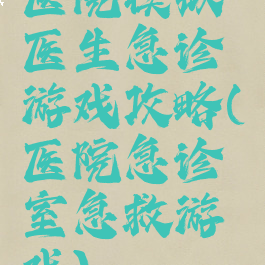 医院模拟
医生急诊
游戏攻略(
医院急诊
室急救游
戏)